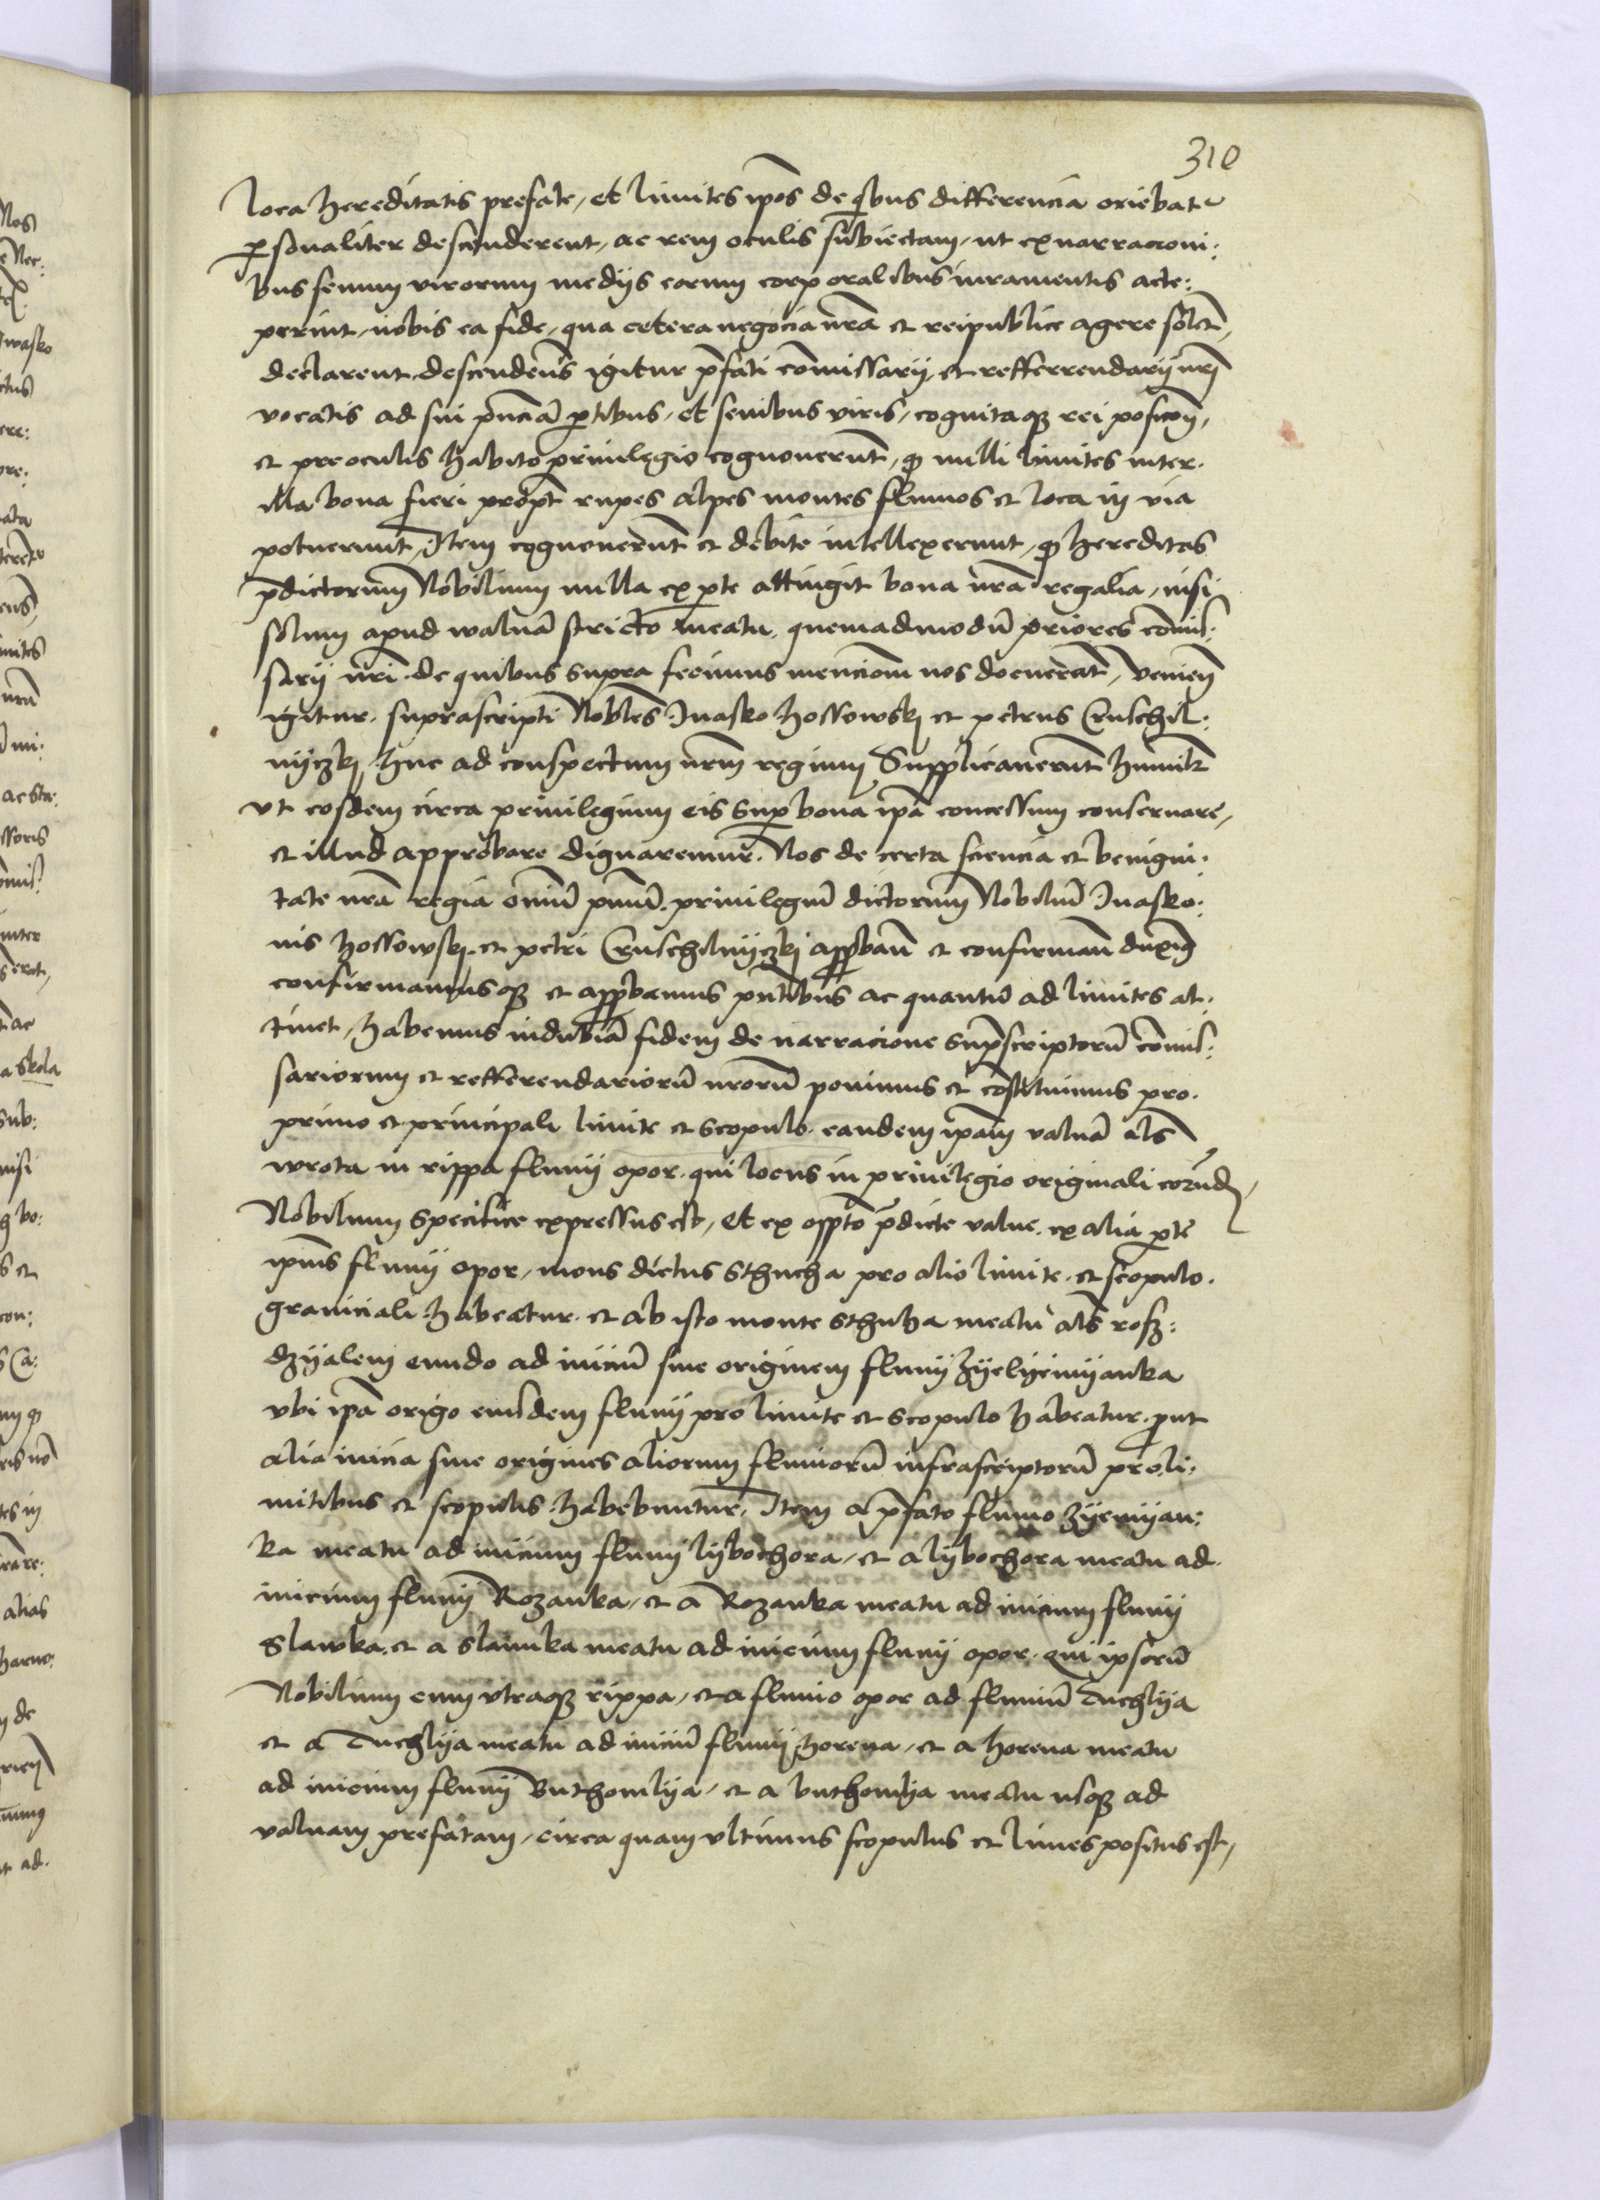 310
loca hereditatis prefate, et limites ip̄os de qbus differencia oriebat᷑
ꝑsonaliter descenderent, ac rem oculis subiectam, ut ex narracioni:
bus senum virorum medijs eorum corporalibus iuramentis acce:
perint, nobis ea fide, qua cetera negocia nr̄a et reipublice agere solet,
declarent. descendens igitur p̄fati com̄issarij, et refferrendarij nr̄i
vocatis ad sui p̄nciā ꝑtibus, et senibus viris, cognitaqꝫ rei posicōn,
et pre oculis habito priuilegio cognouerunt, qꝫ nulli limites inter.
illa bona fieri propt̄ rupes alpes montes fluuios et loca in via
potuerunt, Item cognouerunt et debite intellexerunt, qꝫ hereditas
p̄dictorum Nobilium nulla ex ꝑte attingit bona nr̄a regalia, nisi
solum apud waluā stricto meatu, quemadmodū priores com̄is:
sarij nr̄i. de quibus supra fecimus mencionem nos docuerāt, venien̄
igitur. suprascripti Nobles Iuasko hossowskj et petrus Cruschil:
nijczkj, huc ad conspectum nr̄m regium Supplicauerunt humilr̄
vt eosdem circa priuilegium eis suꝑ bona ip̄a concessum conseruare,
et illud approbare dignaremur. Nos de certa sciencia et benigni.
tate nr̄a regia omnī p̄mū. priuilegiū dictorum Nobiliū Iuasko:
nis hossowskj. et petri Cruschilnijczkj app̄bān et confirmān duximꝰ
confirmamusqꝫ et app̄bamus pn̄tibus ac quantū ad limites at.
tinet, habemus indubiā fidem de narracione sup̄scriptorū com̄is:
sariorum et refferendariorū nr̄orū ponimus et cōstituimus pro.
primo et principali limite et scopulo. eandem ip̄am valuā als̄
wrota in rippa fluuij opor. qui locus in priuilegio originali eorund̄,
Nobilium specifice expressus est, Et ex opp̄to p̄dicte value. ex alia ꝑte
ip̄ius fluuij opor, mons dictus Sthucha pro alio limite. et scopulo.
graniciali habeatur. et ab isto monte Sthuha meatu als̄ rosz:
dzijalem eundo ad iniciū siue originem fluuij zijelijemijanka
vbi ip̄a origo eiusdem fluuij pro limite et scopulo habeatur. prout
alia inicia siue origines aliorum fluuiorū infrascriptorū pro li:
mitibus et scopulis habebuntur. Item a p̄fato fluuio zijemijan:
ka meatu ad inicium fluuij lijbochora, et a lijbochora meatu ad.
inicium fluuij Rozanka, et a Rozanka meatu ad inicium fluuij
Slawka. et a Slawka meatu ad inicium fluuij opor. qui ipsorū
Nobilium cum vtraqꝫ rippa, et a fluuio opor ad fluuiū Tuchlija
et a Tuchlija meatu ad iniciū fluuij horena, et a horena meatu
ad inicium fluuij Buthomlija, et a buthomlja meatu usqꝫ ad
valuam prefatam, circa quam vltimus scopulus et limes positus est,